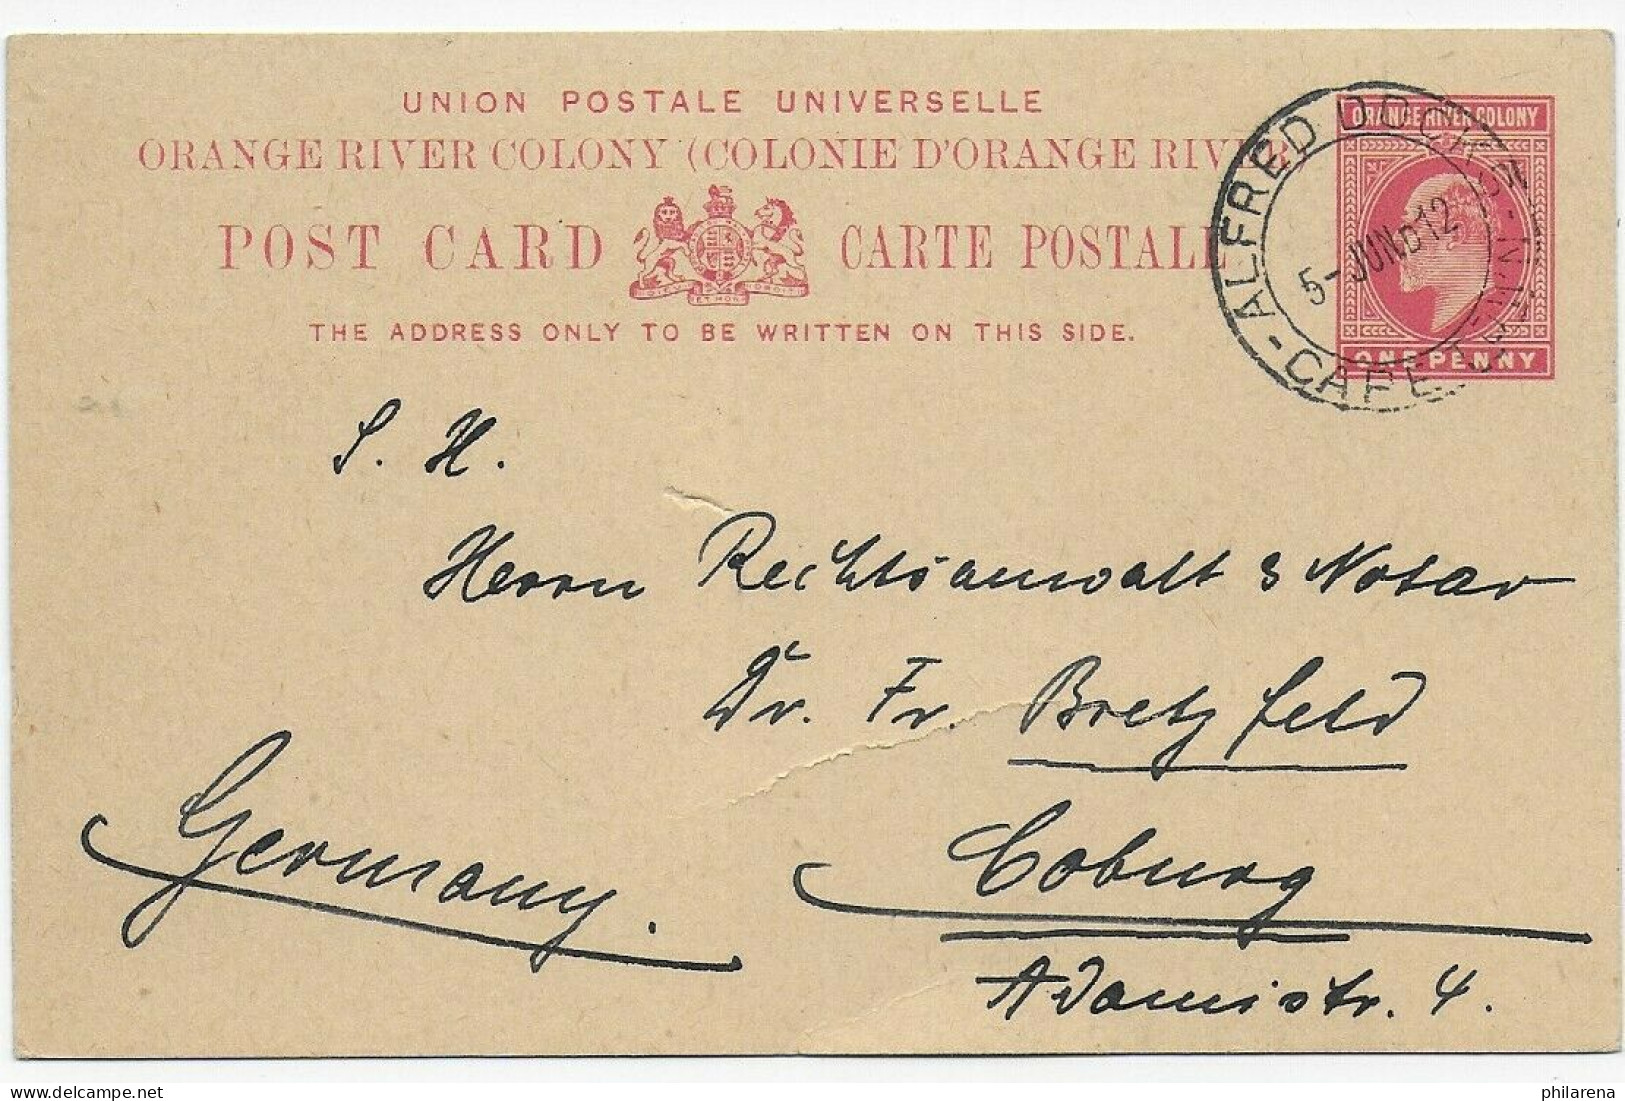 UNION POSTALE UNIVERSELLE
ORANGE RIVER COLONY (COLONIE D'ORANGE RIVER
POST CARD CARTE POSTALE
THE ADDRESS ONLY TO BE WRITTEN ON THIS SIDE.
ORANGE RIVER COLONY
ONE PENNY
ALFRED DOCKS
5-JUN 12
CAPE
S. H.
Herrn Rechtsanwalt & Notar
Dr. Fr. Bretzfeld
Coburg
Adamistr. 4.
Germany.
philarena